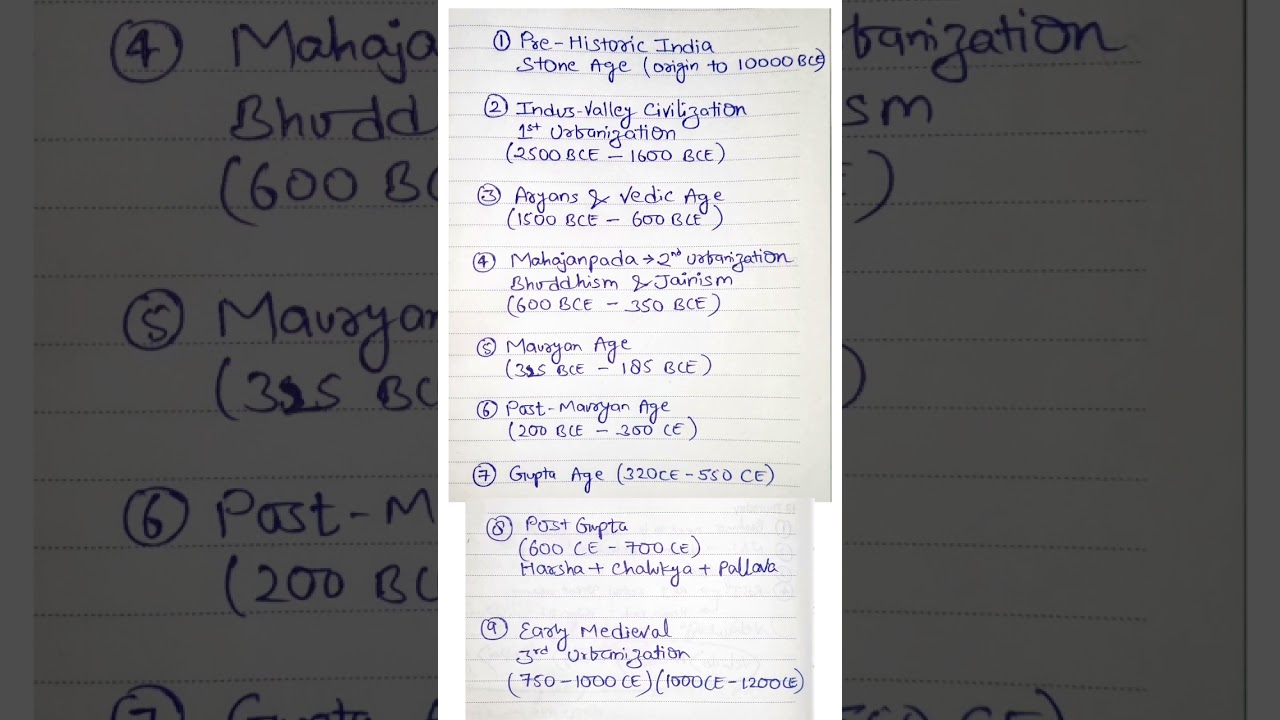 ① Pre-Historic India
Stone Age (origin to 10000 BCE)
② Indus-Valley Civilization
1st Urbanization
(2500 BCE - 1600 BCE)
③ Aryans & Vedic Age
(1500 BCE - 600 BCE)
④ Mahajanpada → 2nd Urbanization
Bhuddhism & Jainism
(600 BCE - 350 BCE)
⑤ Mauryan Age
(325 BCE - 185 BCE)
⑥ Post-Mauryan Age
(200 BCE - 300 CE)
⑦ Gupta Age (320CE - 550 CE)
⑧ Post Gupta
(600 CE - 700 CE)
Harsha + Chalukya + Pallava
⑨ Early Medieval
3rd Urbanization
(750 - 1000 CE) (1000CE - 1200CE)